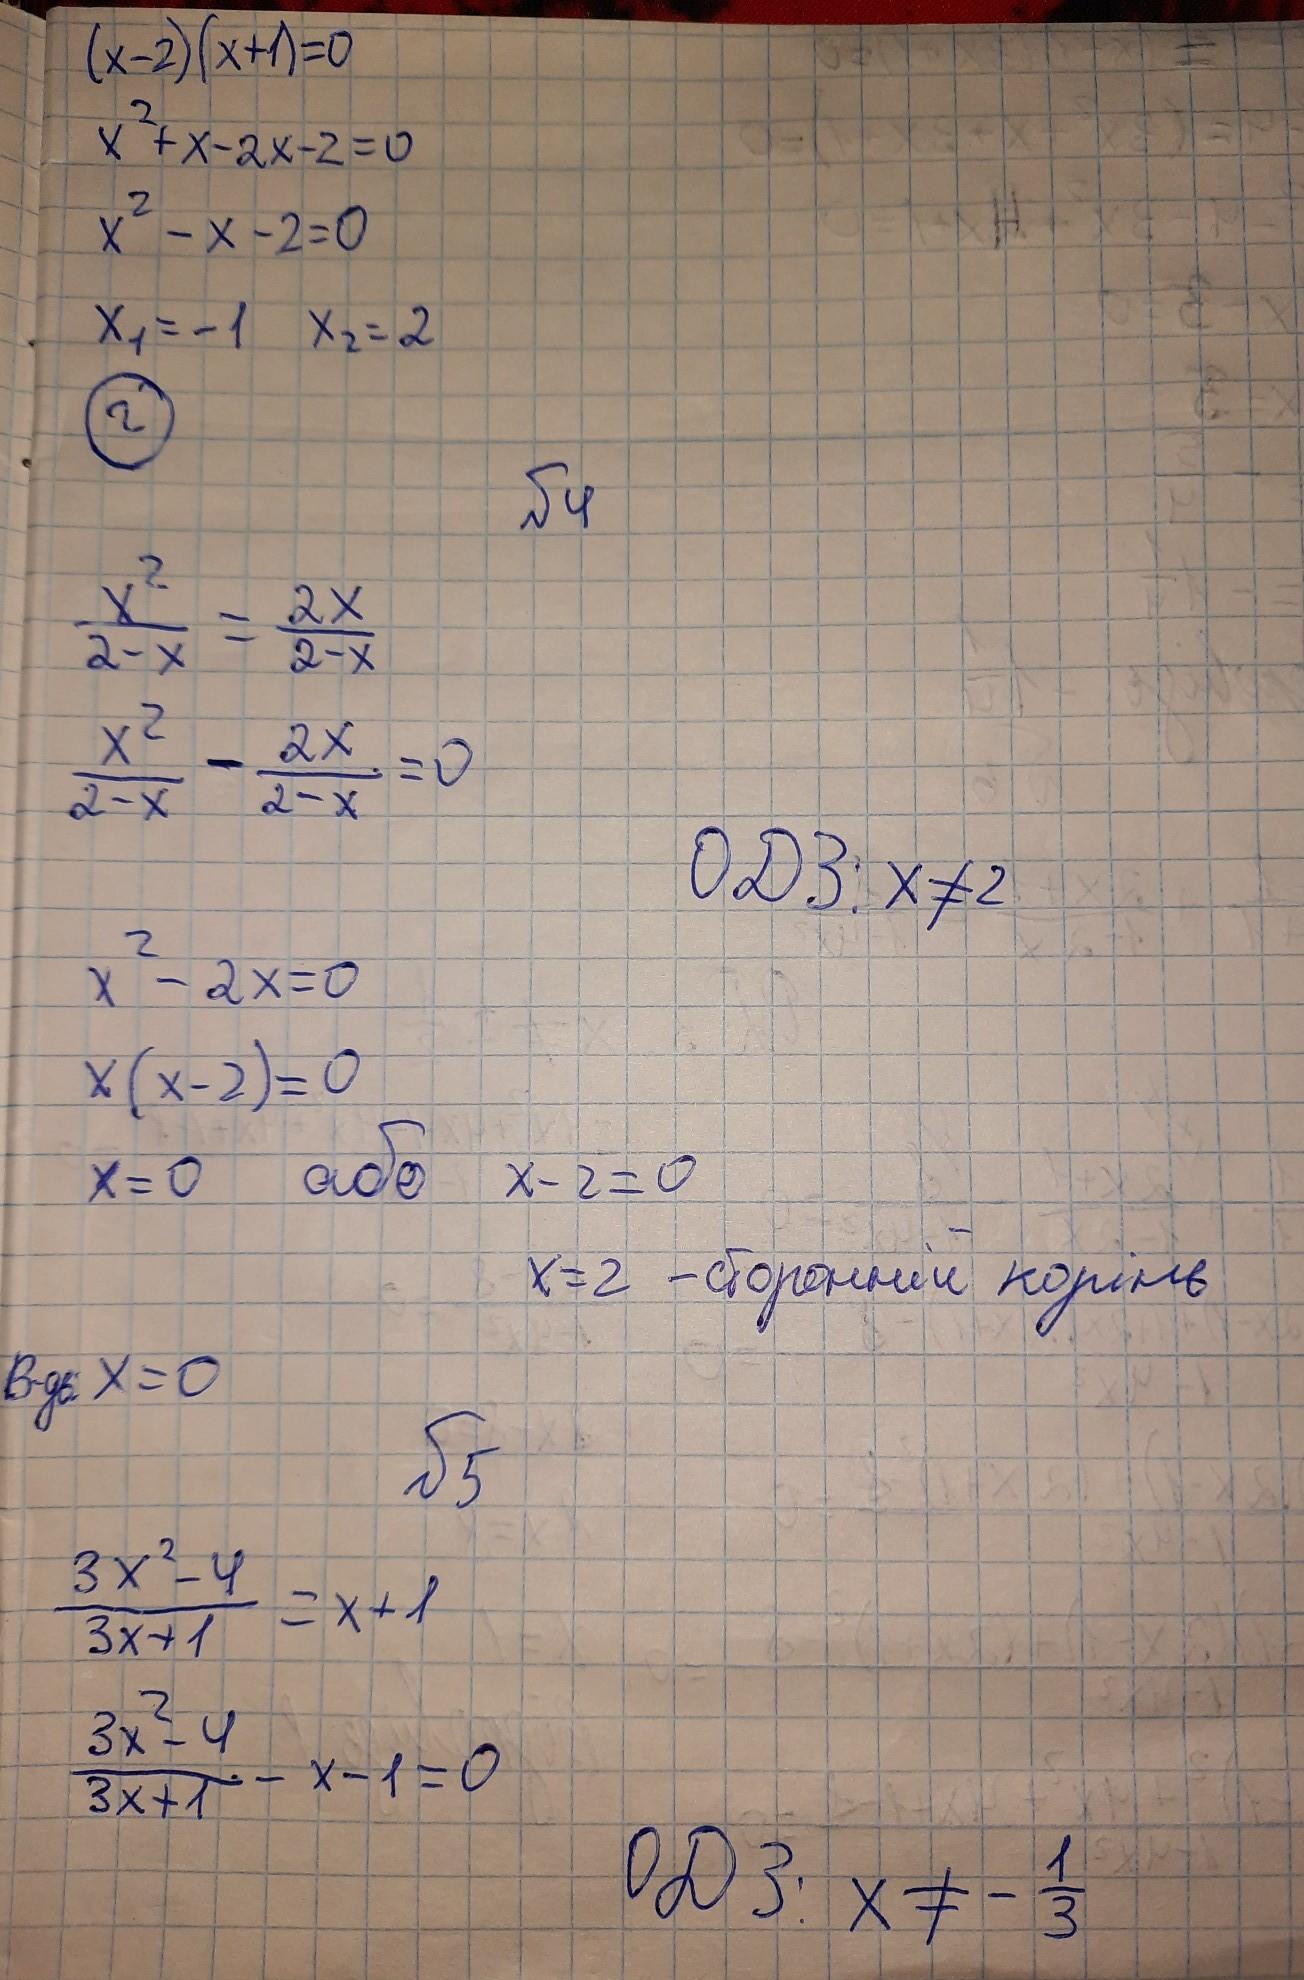 (x-2)(x+1)=0
x²+x-2x-2=0
x²-x-2=0
x₁=-1 x₂=2
2
№4
x²/(2-x) = 2x/(2-x)
x²/(2-x) - 2x/(2-x) =0
ОДЗ: x≠2
x²-2x=0
x(x-2)=0
x=0 або x-2=0
x=2 - сторонній корінь
В-дь: x=0
№5
(3x²-4)/(3x+1) = x+1
(3x²-4)/(3x+1) - x-1=0
ОДЗ: x≠-1/3